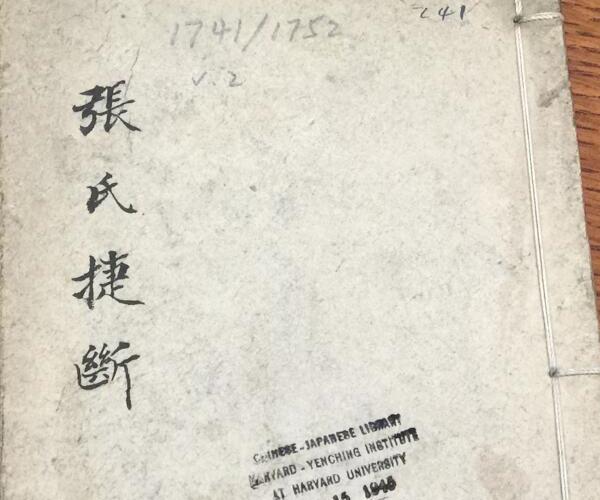 1741/1752
241
v.2
張氏捷斷
CHINESE-JAPANESE LIBRARY
HARVARD-YENCHING INSTITUTE
AT HARVARD UNIVERSITY
15 1945